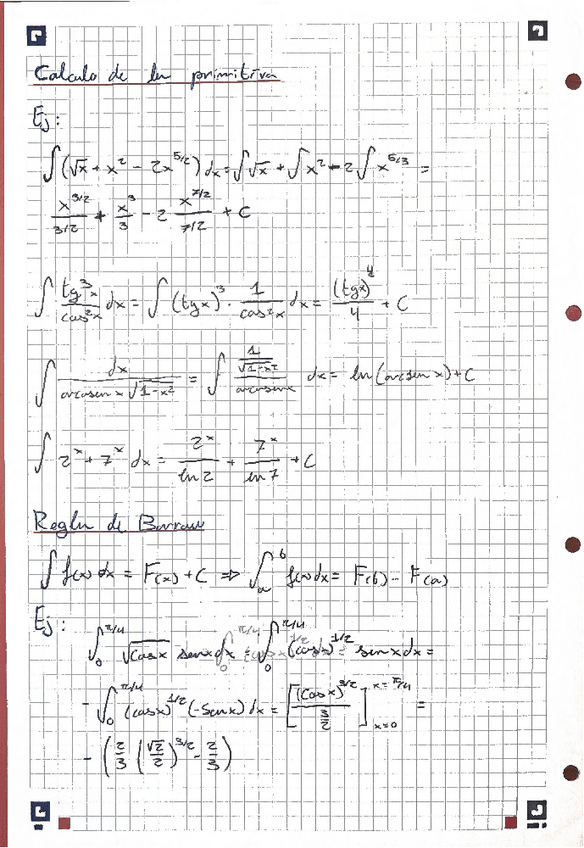 Calculo de la primitiva
Ej:
∫(√x + x² - 2x^{5/2}) dx = ∫√x + ∫x² - 2∫x^{5/3} =
x^{3/2}/(3/2) + x³/3 - 2 x^{7/2}/(7/2) + C
∫ tg³x/cos²x dx = ∫(tgx)³ · 1/cos²x dx = (tgx)⁴/4 + C
∫ dx/(arcsen x √(1-x²)) = ∫ (1/√(1-x²))/arcsenx dx = ln(arcsen x) + C
∫ 2ˣ + 7ˣ dx = 2ˣ/ln2 + 7ˣ/ln7 + C
Regla de Barrow
∫f(x) dx = F(x) + C ⇒ ∫_a^b f(x) dx = F(b) - F(a)
Ej:
∫_0^{π/4} √cosx senx dx = ∫_0^{π/4} (cosx)^{1/2} senx dx =
- ∫_0^{π/4} (cosx)^{1/2} (-senx) dx = [(cosx)^{3/2}/(3/2)]_{x=0}^{x=π/4} =
- (2/3 (√2/2)^{3/2} - 2/3)